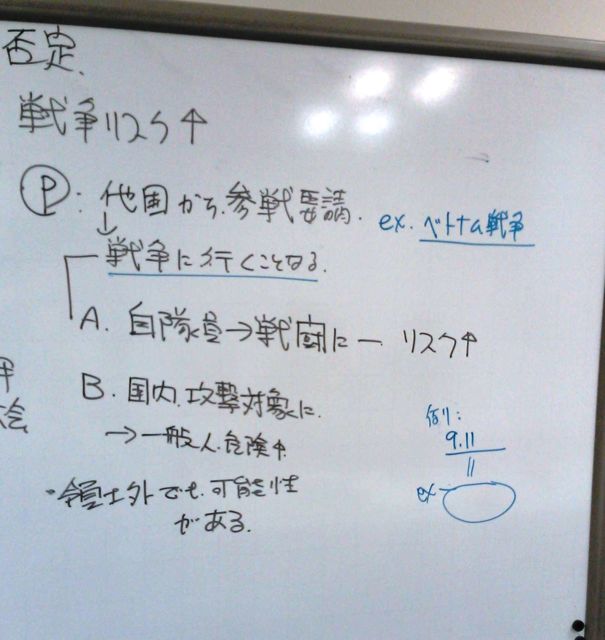 否定、
戦争リスク↑
Ⓟ: 他国から、参戦要請. ex. ベトナム戦争
↓
戦争に行くことなる.
A. 自隊員→戦闘に― リスク↑
B. 国内、攻撃対象に.
→一般人、危険↑
例:
9.11
〃
ex
・領土外でも、可能性
がある.